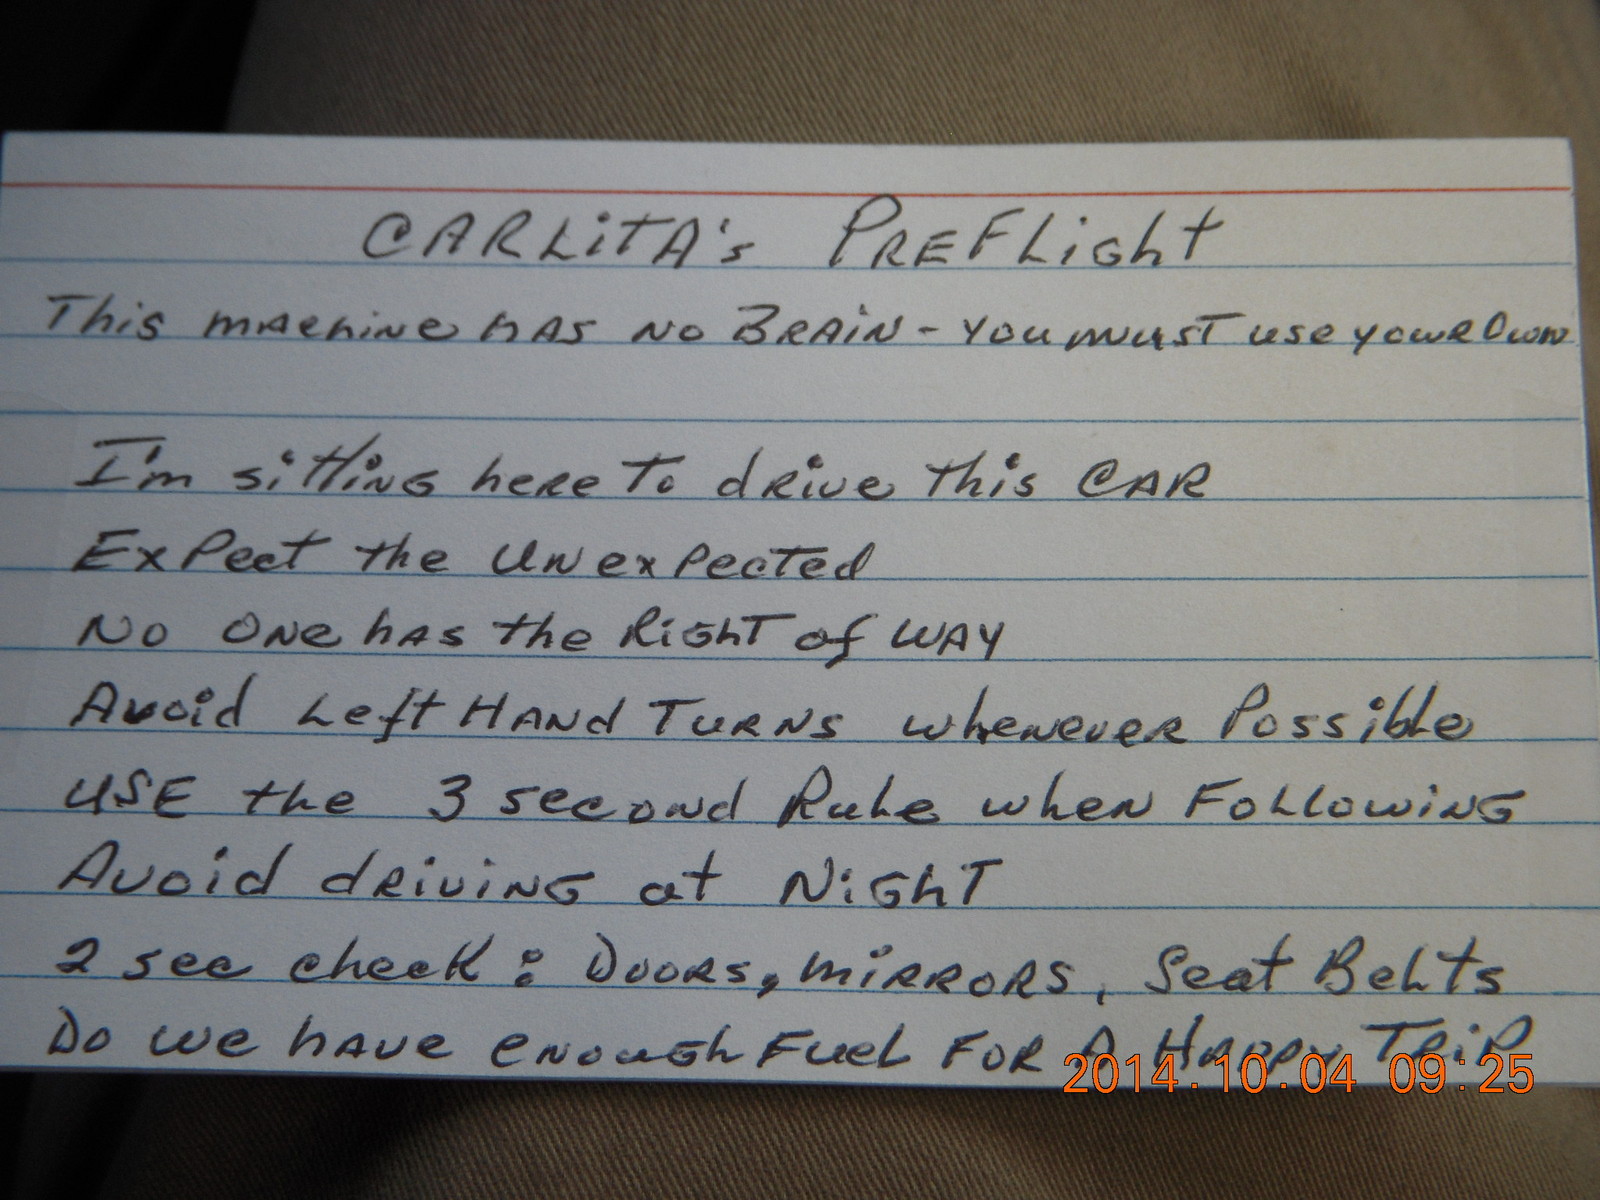 CARLiTA's PREFLight
This machine has no BRAIN - you must use your Own
I'm sitting here To drive this CAR
Expect the Unexpected
No One has the Right of WAY
Avoid Left HAND TURNS whenever Possible
USE the 3 second Rule when Following
Avoid driving at Night
2 sec check: Doors, mirrors, Seat Belts
Do we have enough Fuel FOR A HAPPY TRIP
2014.10.04 09:25